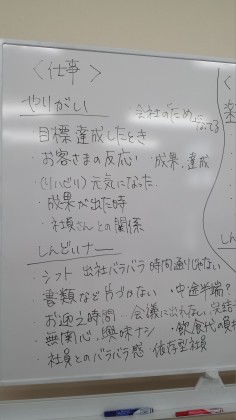 <仕事>
やりがい
会社の「ため」になってる
目標達成したとき
・お客さまの反応い ・成果、達成
(リハビリ) 元気になった
・成果が出た時
・社員さんとの関係
しんどいナー
・シフト 出社バラバラ 時間通りじゃない
・書類などかたづかない ・中途半端?
お迎え時間…会議に出れない
・無関心、興味ナシ ・飲食代の負担
・社員とのバラバラ感 依存型社員